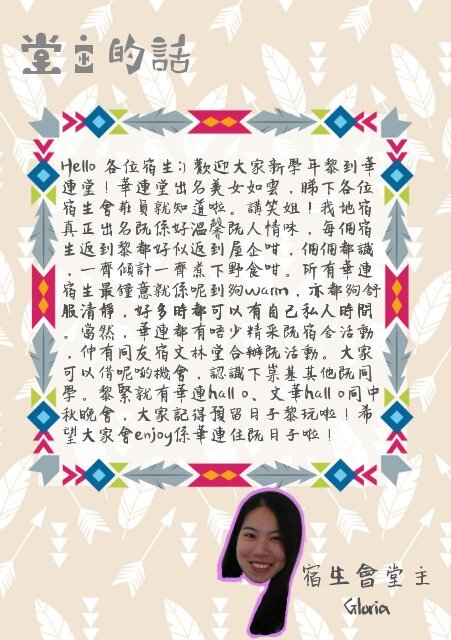 堂主的話
Hello 各位宿生:) 歡迎大家新學年黎到華
連堂！華連堂出名美女如雲，睇下各位
宿生會莊員就知道啦。講笑姐！我地宿
真正出名既係好溫馨既人情味，每個宿
生返到黎都好似返到屋企咁，個個都識
，一齊傾計一齊煮下野食咁。所有華連
宿生最鐘意就係呢到夠warm，亦都夠舒
服清靜，好多時都可以有自己私人時間
。當然，華連都有唔少精采既宿舍活動
，仲有同友宿文林堂合辦既活動。大家
可以借呢啲機會，認識下崇基其他既同
學。黎緊就有華連hall o、文華hall o同中
秋晚會，大家記得預留日子黎玩啦！希
望大家會enjoy係華連住既日子啦！
宿生會堂主
Gloria